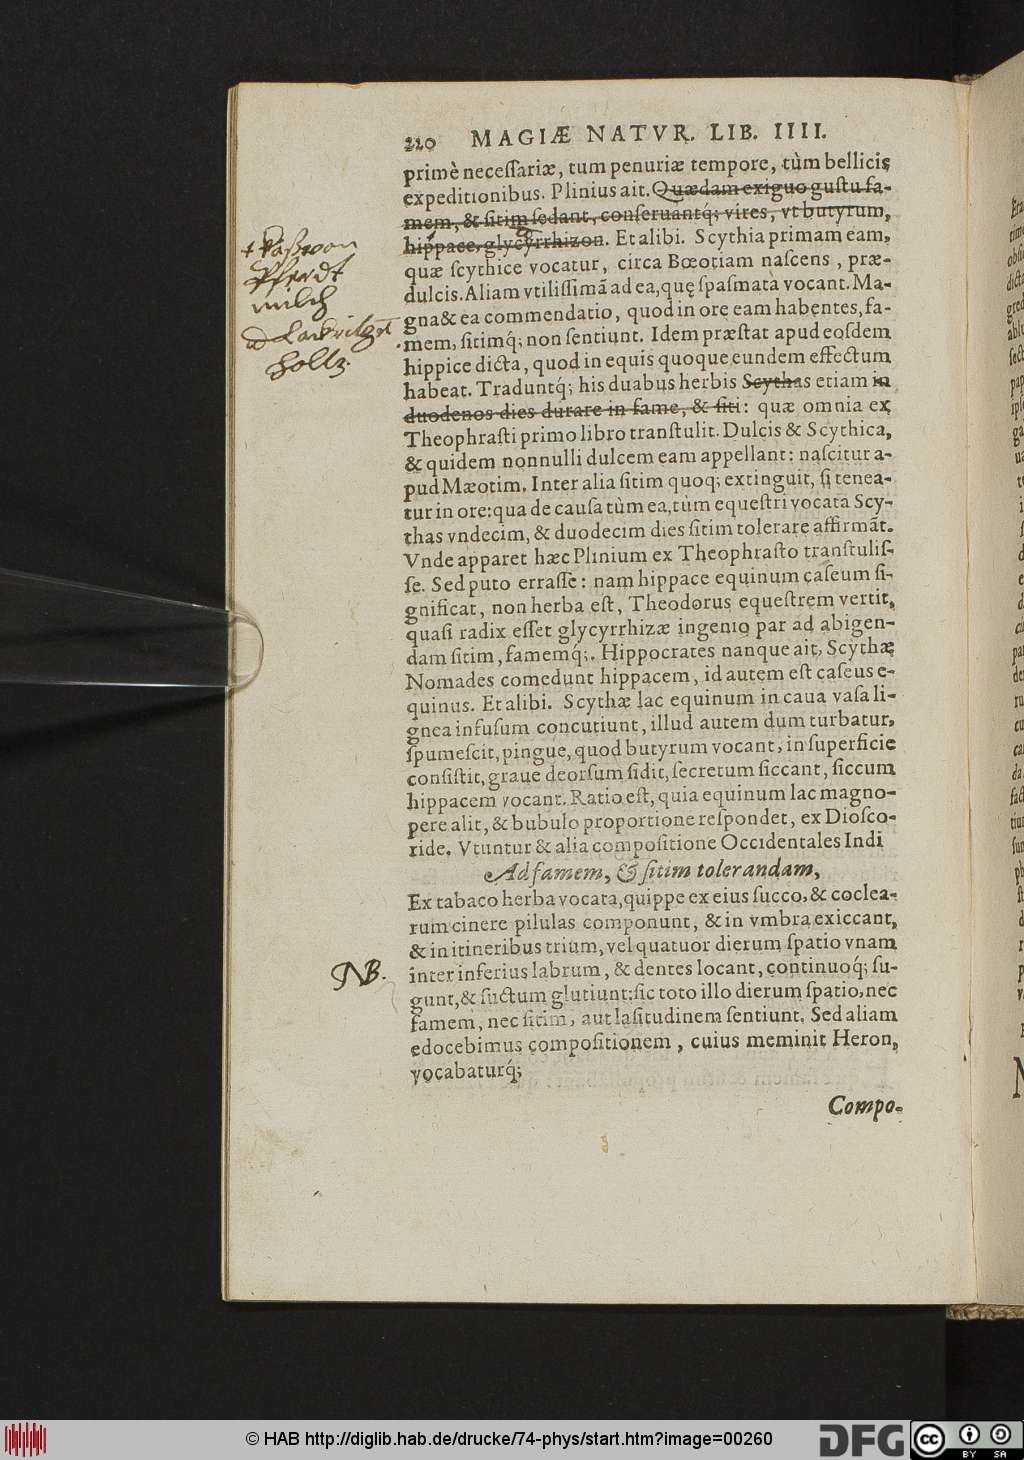 220 MAGIÆ NATVR. LIB. IIII.
primè necessariæ, tum penuriæ tempore, tùm bellicis
expeditionibus. Plinius ait. Quædam exiguo gustu fa-
mem, & sitim sedant, conseruantq́; vires, vt butyrum,
hippace, glycyrrhizon. Et alibi. Scythia primam eam,
quæ scythice vocatur, circa Bœotiam nascens, præ-
dulcis. Aliam vtilissimã ad ea, quę spasmata vocant. Ma-
gna & ea commendatio, quod in ore eam habentes, fa-
mem, sitimq́; non sentiunt. Idem præstat apud eosdem
hippice dicta, quod in equis quoque eundem effectum
habeat. Traduntq́; his duabus herbis Scythas etiam in
duodenos dies durare in fame, & siti: quæ omnia ex
Theophrasti primo libro transtulit. Dulcis & Scythica,
& quidem nonnulli dulcem eam appellant: nascitur a-
pud Mæotim. Inter alia sitim quoq; extinguit, si tenea-
tur in ore: qua de causa tùm ea, tùm equestri vocata Scy-
thas vndecim, & duodecim dies sitim tolerare affirmãt.
Vnde apparet hæc Plinium ex Theophrasto transtulis-
se. Sed puto errasse: nam hippace equinum caseum si-
gnificat, non herba est, Theodorus equestrem vertit,
quasi radix esset glycyrrhizæ ingenio par ad abigen-
dam sitim, famemq́;. Hippocrates nanque ait, Scythæ
Nomades comedunt hippacem, id autem est caseus e-
quinus. Et alibi. Scythæ lac equinum in caua vasa li-
gnea infusum concutiunt, illud autem dum turbatur,
spumescit, pingue, quod butyrum vocant, in superficie
consistit, graue deorsum sidit, secretum siccant, siccum
hippacem vocant. Ratio est, quia equinum lac magno-
pere alit, & bubulo proportione respondet, ex Diosco-
ride. Vtuntur & alia compositione Occidentales Indi
Ad famem, & sitim tolerandam,
Ex tabaco herba vocata, quippe ex eius succo, & coclea-
rum cinere pilulas componunt, & in vmbra exiccant,
& in itineribus trium, vel quatuor dierum spatio vnam
inter inferius labrum, & dentes locant, continuoq́; su-
gunt, & suctum glutiunt: sic toto illo dierum spatio, nec
famem, nec sitim, aut lasitudinem sentiunt. Sed aliam
edocebimus compositionem, cuius meminit Heron,
vocabaturq́;
Compo-
+ Käß von
Pferdt
milch
Lackritzen
holtz.
NB.
© HAB http://diglib.hab.de/drucke/74-phys/start.htm?image=00260
DFG
cc
BY SA